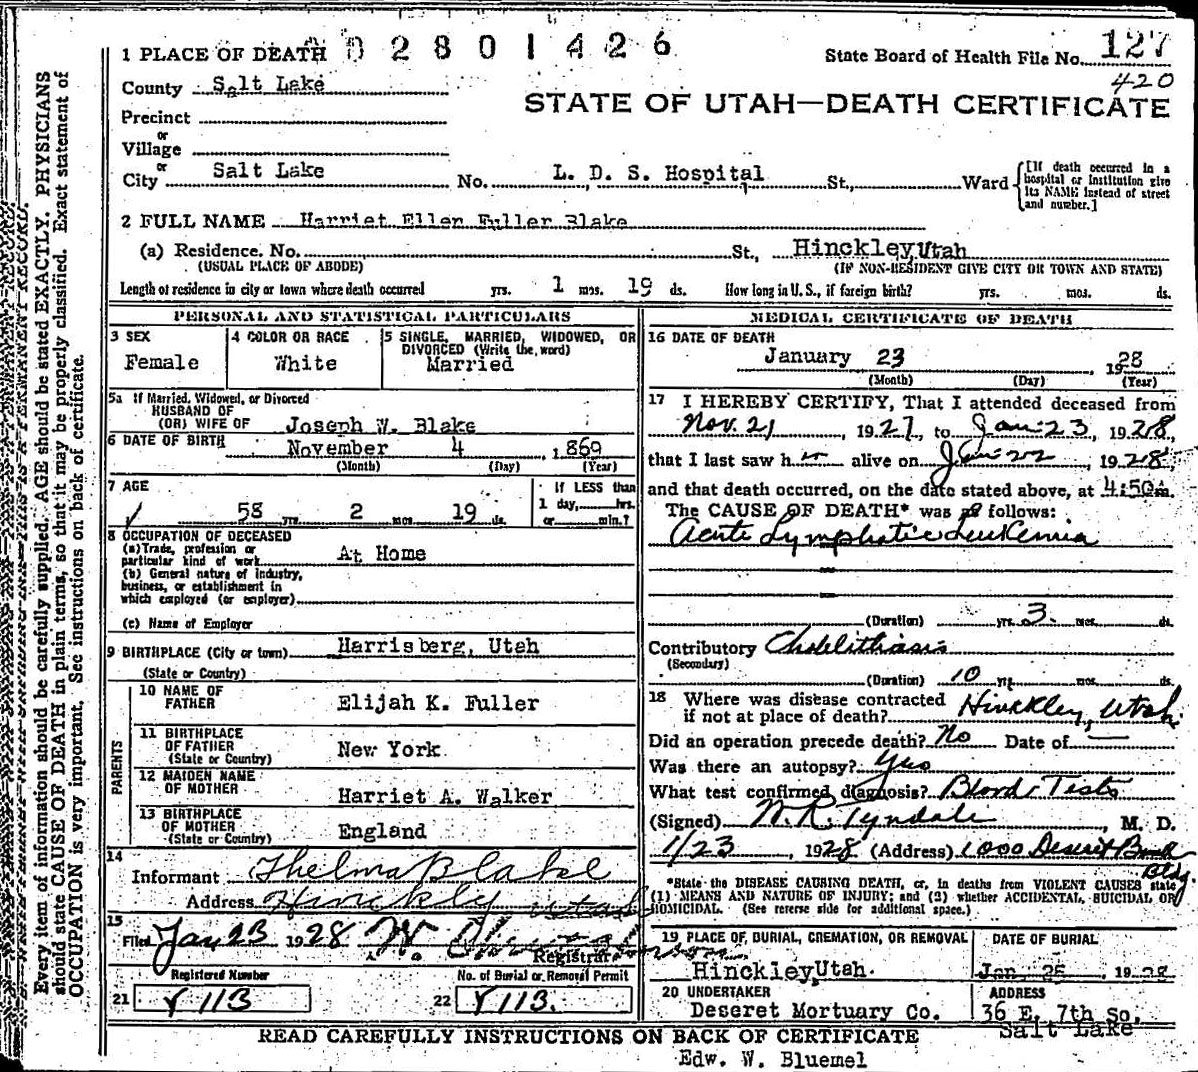 Every item of information should be carefully supplied. AGE should be stated EXACTLY. PHYSICIANS
should state CAUSE OF DEATH in plain terms, so that it may be properly classified. Exact statement of
OCCUPATION is very important. See instructions on back of certificate.
1 PLACE OF DEATH 02801426
State Board of Health File No. 127
420
County Salt Lake
STATE OF UTAH—DEATH CERTIFICATE
Precinct
or
Village
or
City Salt Lake No. L. D. S. Hospital St., Ward
[If death occurred in a
hospital or institution give
its NAME instead of street
and number.]
2 FULL NAME Harriet Ellen Fuller Blake
(a) Residence. No. St., Hinckley, Utah
(USUAL PLACE OF ABODE) (IF NON-RESIDENT GIVE CITY OR TOWN AND STATE)
Length of residence in city or town where death occurred yrs. 1 mos. 19 ds. How long in U. S., if foreign birth? yrs. mos. ds.
PERSONAL AND STATISTICAL PARTICULARS
3 SEX
Female
4 COLOR OR RACE
White
5 SINGLE, MARRIED, WIDOWED, OR
DIVORCED (Write the word)
Married
5a If Married, Widowed, or Divorced
HUSBAND OF
(OR) WIFE OF Joseph W. Blake
6 DATE OF BIRTH November 4, 1869
(Month) (Day) (Year)
7 AGE
58 yrs. 2 mos. 19 ds.
If LESS than
1 day, hrs.
or min.?
8 OCCUPATION OF DECEASED
(a) Trade, profession or
particular kind of work At Home
(b) General nature of industry,
business, or establishment in
which employed (or employer)
(c) Name of Employer
9 BIRTHPLACE (City or town) Harrisberg, Utah
(State or Country)
PARENTS
10 NAME OF
FATHER Elijah K. Fuller
11 BIRTHPLACE
OF FATHER
(State or Country) New York
12 MAIDEN NAME
OF MOTHER Harriet A. Walker
13 BIRTHPLACE
OF MOTHER
(State or Country) England
14
Informant Thelma Blake
Address Hinckley Utah
15
Filed Jan 23 1928 W.
Registrar
Registered Number
21 113
No. of Burial or Removal Permit
22 113.
MEDICAL CERTIFICATE OF DEATH
16 DATE OF DEATH
January 23, 1928
(Month) (Day) (Year)
17 I HEREBY CERTIFY, That I attended deceased from
Nov. 21, 1927, to Jan. 23, 1928,
that I last saw h alive on Jan. 22, 1928,
and that death occurred, on the date stated above, at 4:50 m.
The CAUSE OF DEATH* was as follows:
Acute Lymphatic Leukemia
(Duration) yrs. 3. mos. ds.
Contributory Cholelithiasis
(Secondary)
(Duration) 10 yrs. mos. ds.
18 Where was disease contracted
if not at place of death? Hinckley, Utah.
Did an operation precede death? No Date of —
Was there an autopsy? Yes
What test confirmed diagnosis? Blood Tests
(Signed) W. R. Tyndale, M. D.
1/23, 1928 (Address) 1000 Deseret Bank
Bldg.
*State the DISEASE CAUSING DEATH, or, in deaths from VIOLENT CAUSES state
(1) MEANS AND NATURE OF INJURY; and (2) whether ACCIDENTAL, SUICIDAL OR
HOMICIDAL. (See reverse side for additional space.)
19 PLACE OF BURIAL, CREMATION, OR REMOVAL
Hinckley, Utah.
DATE OF BURIAL
Jan 25, 1928
20 UNDERTAKER
Deseret Mortuary Co.
ADDRESS
36 E. 7th So.
Salt Lake
READ CAREFULLY INSTRUCTIONS ON BACK OF CERTIFICATE
Edw. W. Bluemel